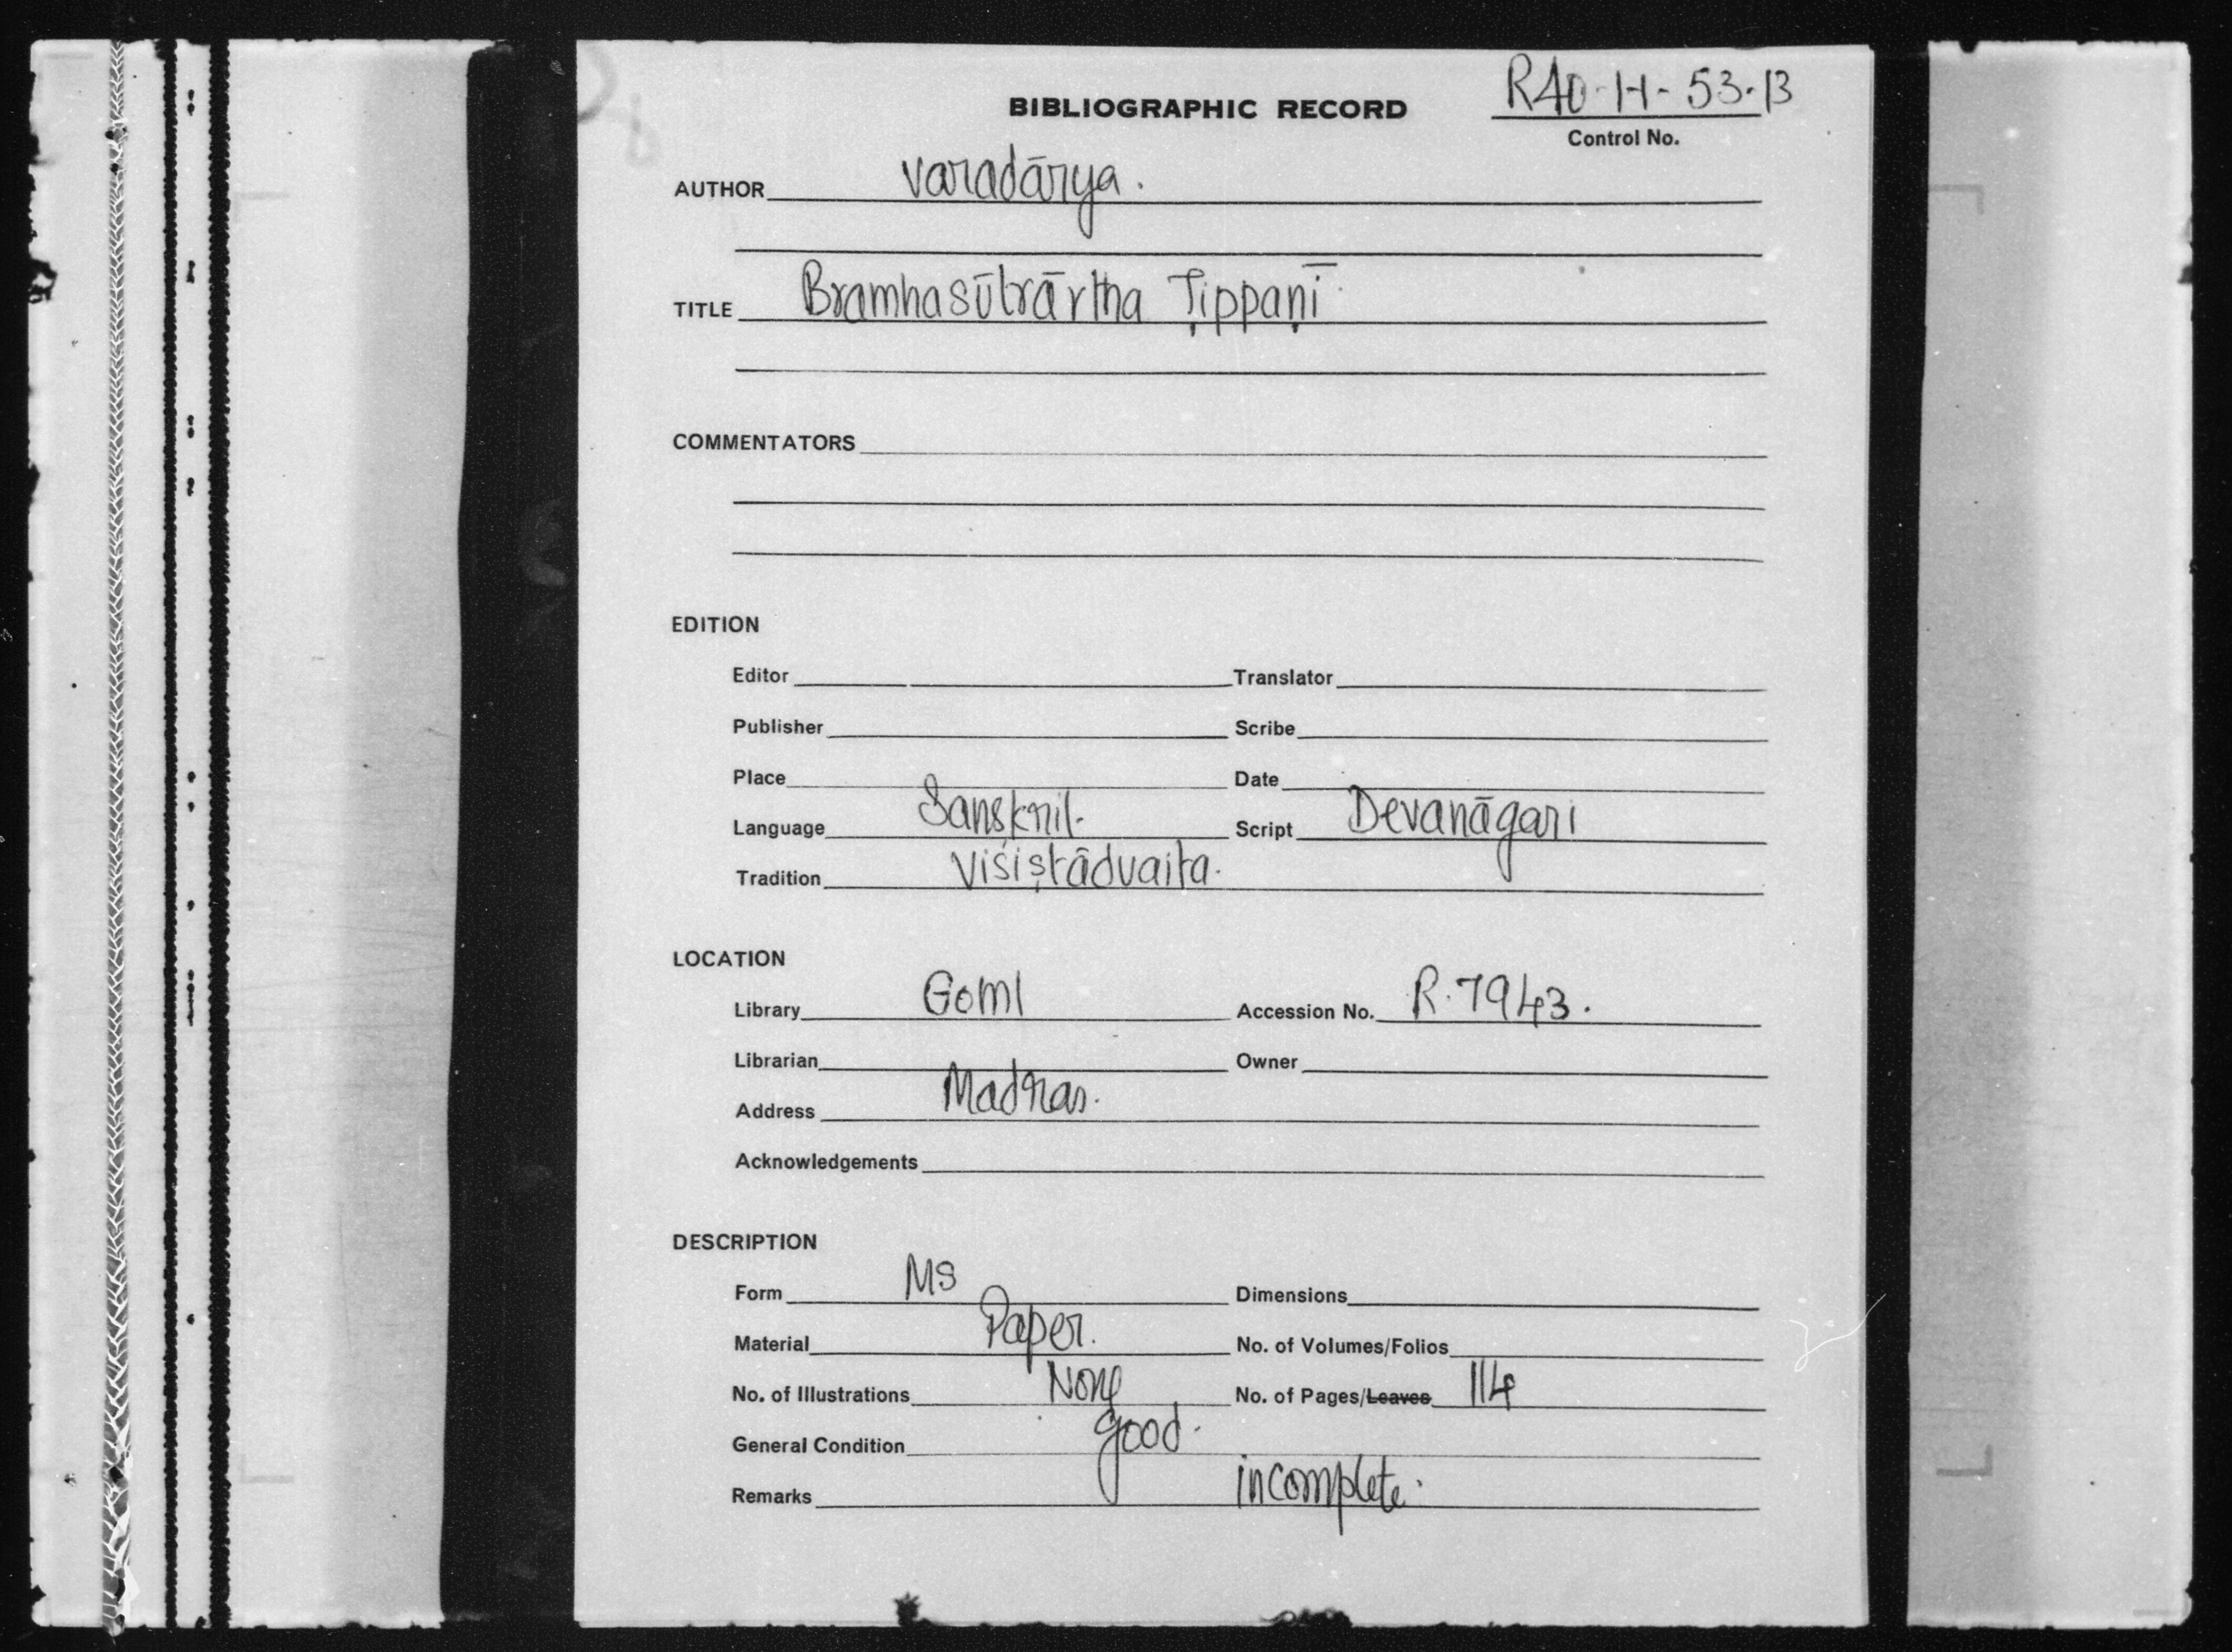 R40-H-53-B
BIBLIOGRAPHIC RECORD
Control No.
AUTHOR Varadārya.
TITLE Bramhasūtrārtha Ṭippaṇī
COMMENTATORS
EDITION
Editor Translator
Publisher Scribe
Place Date
Language Sanskrit. Script Devanāgari
Tradition Viśiṣtādvaita.
LOCATION
Library Goml Accession No. R.7943.
Librarian Owner
Address Madras.
Acknowledgements
DESCRIPTION
Form MS Dimensions
Material Paper. No. of Volumes/Folios
No. of Illustrations None No. of Pages/Leaves 114
General Condition good.
Remarks incomplete.